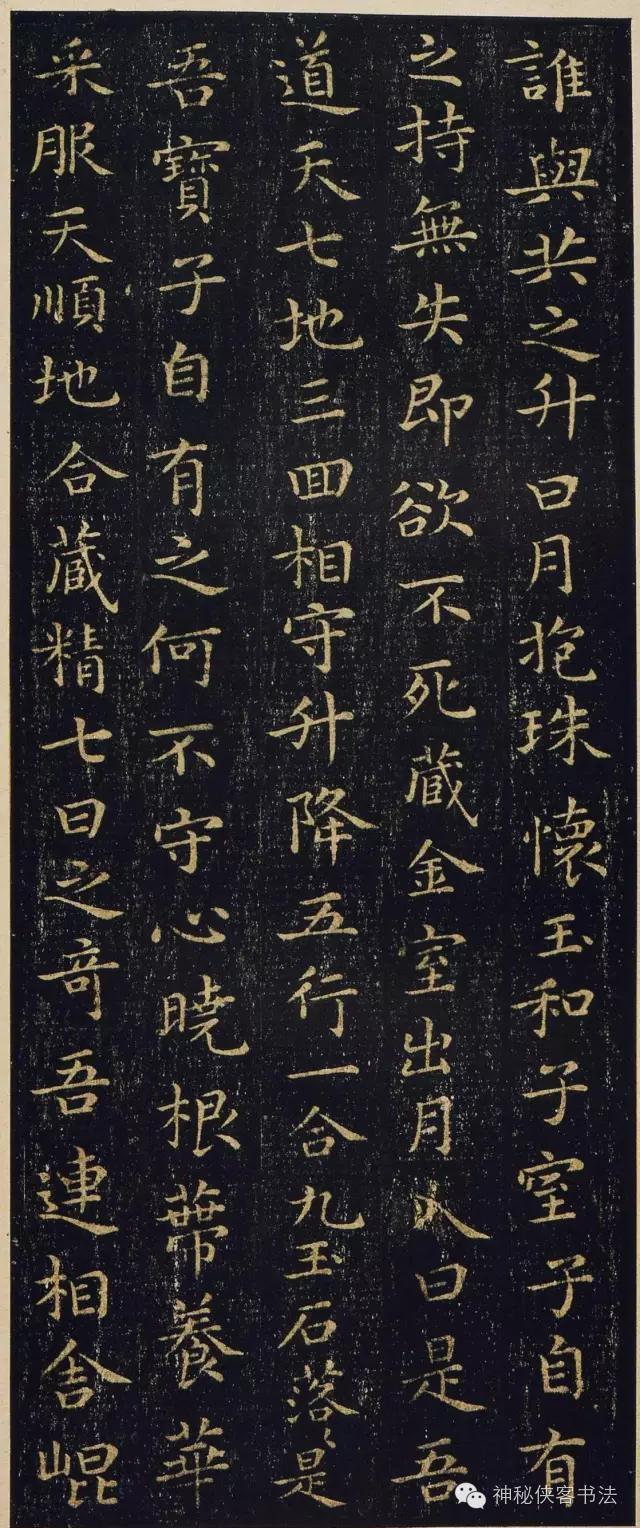 誰與共之升日月抱珠懷玉和子室子自有
之持無失即欲不死藏金室出月入日是吾
道天七地三回相守升降五行一合九玉石落〻是
吾寶子自有之何不守心曉根蔕養華
采服天順地合藏精七日之奇吾連相舎崐
神秘侠客书法